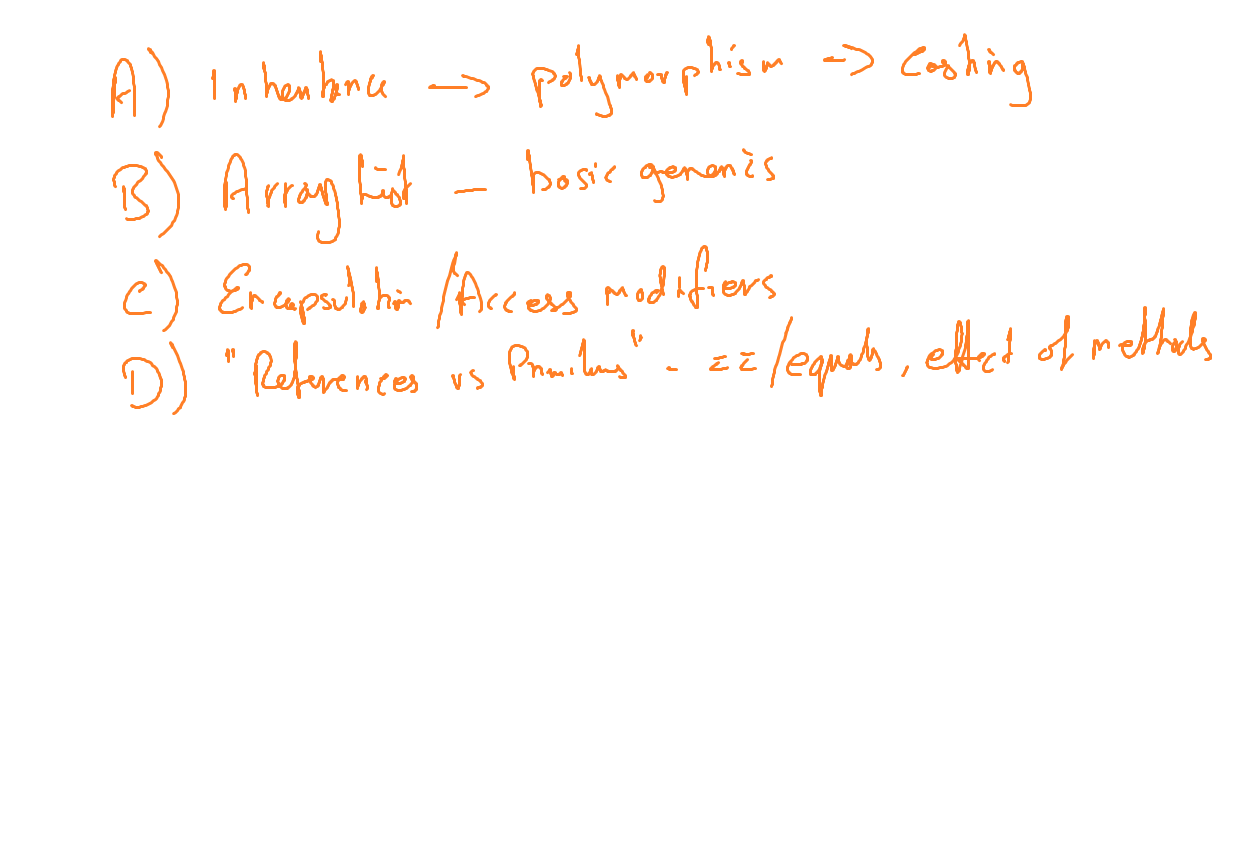 A) Inheritance -> polymorphism -> Casting
B) Array List - basic generics
C) Encapsulation /Access modifiers
D) "References vs Primitives" - == /equals, effect of methods